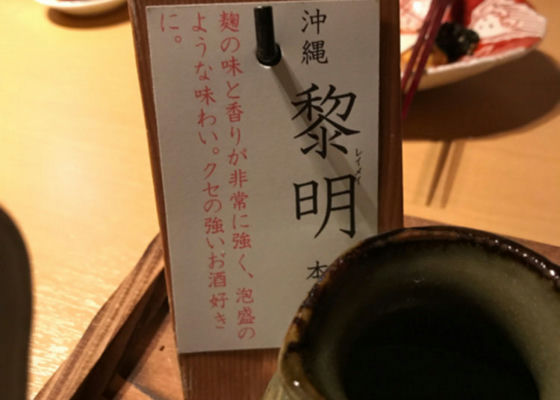 沖縄
黎明
レイメイ
本
麹の味と香りが非常に強く、泡盛の
ような味わい。クセの強いお酒好き
に。